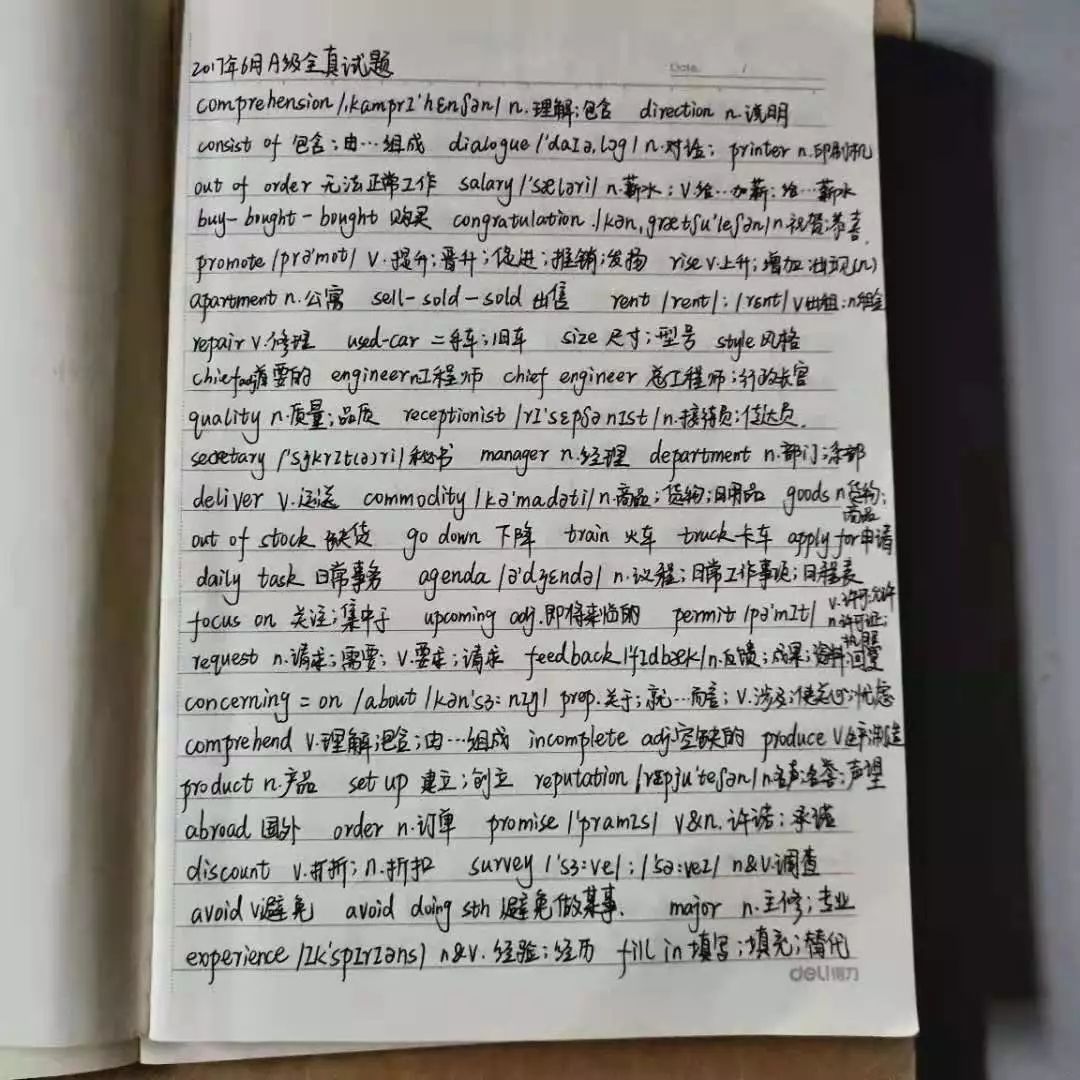 2017年6月A级全真试题
Date /
comprehension /ˌkamprɪ'hɛnʃən/ n.理解;包含 direction n.说明
consist of 包含;由…组成 dialogue /'daɪəˌlɔg/ n.对话; printer n.印刷机
out of order 无法正常工作 salary /'sæləri/ n.薪水;v.给…加薪;给…薪水
buy-bought-bought 购买 congratulation /kənˌgrætʃu'leʃən/ n.祝贺;恭喜
promote /prə'mot/ v.提升;晋升;促进;推销;发扬 rise v.上升;增加 出现(n)
apartment n.公寓 sell-sold-sold 出售 rent /rent/;/rɛnt/ v出租;n租金
repair v.修理 used-car 二手车;旧车 size 尺寸;型号 style 风格
chief adj首要的 engineer n工程师 chief engineer 总工程师;行政长官
quality n.质量;品质 receptionist /rɪ'sɛpʃənɪst/ n.接待员;传达员.
secretary /'sɝkrɪt(ə)ri/ 秘书 manager n.经理 department n.部门;系部
deliver v.运送 commodity /kə'madəti/ n.商品;货物;日用品 goods n货物;
商品
out of stock 缺货 go down 下降 train 火车 truck 卡车 apply for申请
daily task 日常事务 agenda /ə'dʒɛndə/ n.议程;日常工作事项;日程表
focus on 关注;集中于 upcoming adj.即将来临的 permit /pə'mɪt/ v.许可;允许
n.许可证;
执照
request n.请求;需要;v.要求;请求 feedback /'fidbæk/ n.反馈;成果;资料;回复
concerning = on /about /kən'sɜːnɪŋ/ prep.关于;就…而言;v.涉及;使关心;忧虑
comprehend v.理解;包含;由…组成 incomplete adj.空缺的 produce v生产;制造
product n.产品 set up 建立;创立 reputation /ˌrɛpju'teʃən/ n.名声;名誉;声望
abroad 国外 order n.订单 promise /'pramɪs/ v&n.许诺;承诺
discount v.打折;n.折扣 survey /'sɜːve/;/'səːveɪ/ n&v.调查
avoid v避免 avoid doing sth 避免做某事. major n.主修;专业
experience /ɪk'spɪrɪəns/ n&v.经验;经历 fill in 填写;填充;替代
deli得力